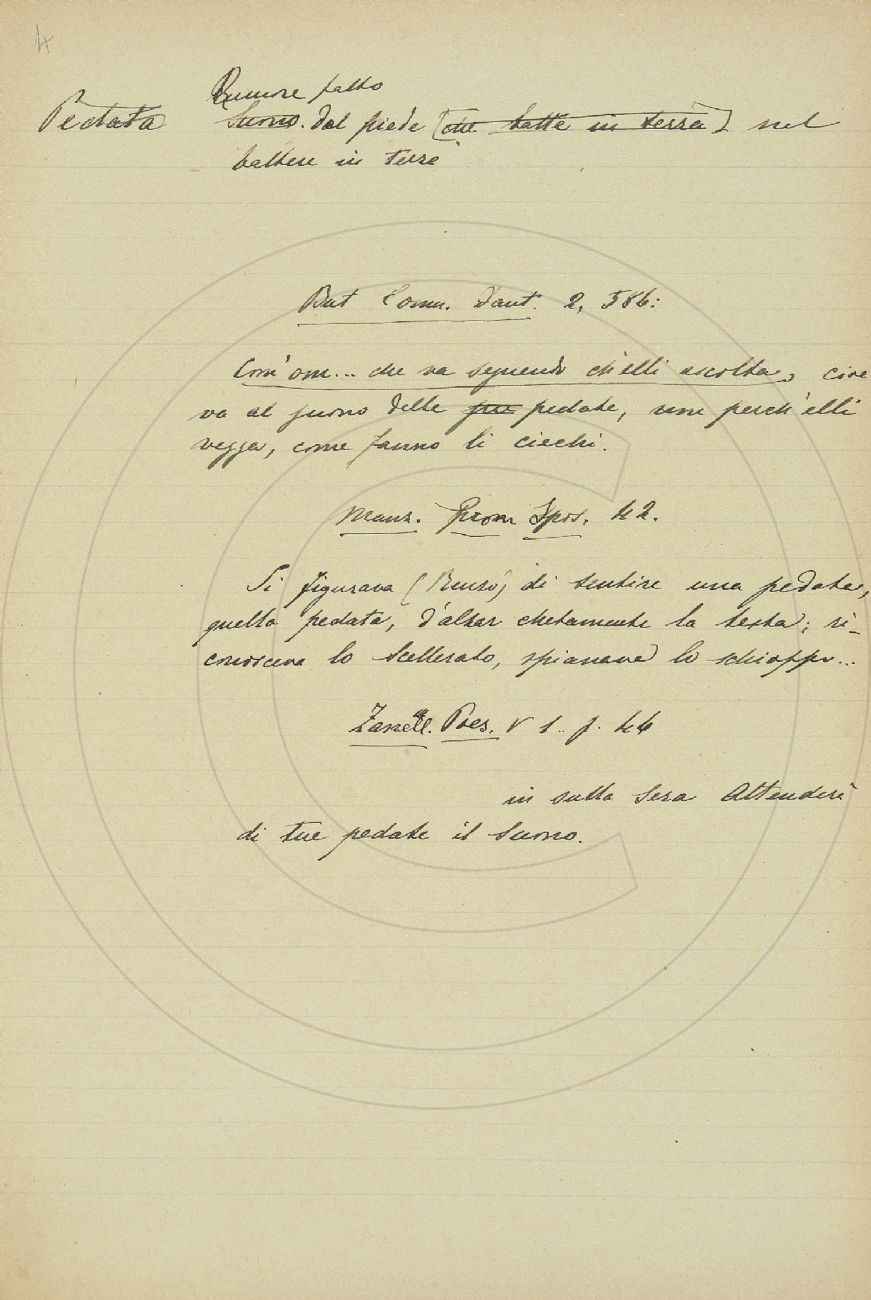 4
Rumore fatto
Pedata Suono. dal piede [che batte in terra] nel
battere in terra
But Comm. Dant. 2, 386:
Com'om... che va seguendo ch'elli ascolta, cioè
va al suono delle sue pedate, non perch'elli
vegga, come fanno li ciechi.
Manz. Prom Spos. 42.
Si figurava (Renzo) di sentire una pedata,
quella pedata, d'alzar chetamente la testa; ri-
conosceva lo scellerato, spianava lo schioppo...
Zanell. Poes. v 1. p. 44
in sulla sera Attenderà
di tue pedate il suono.